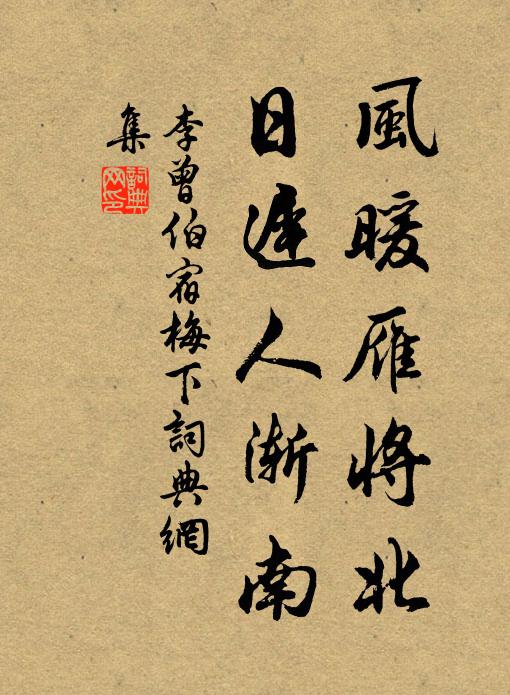 風暖雁將北
日遲人漸南
李曾伯宿梅下詞典網
集
詞典網印